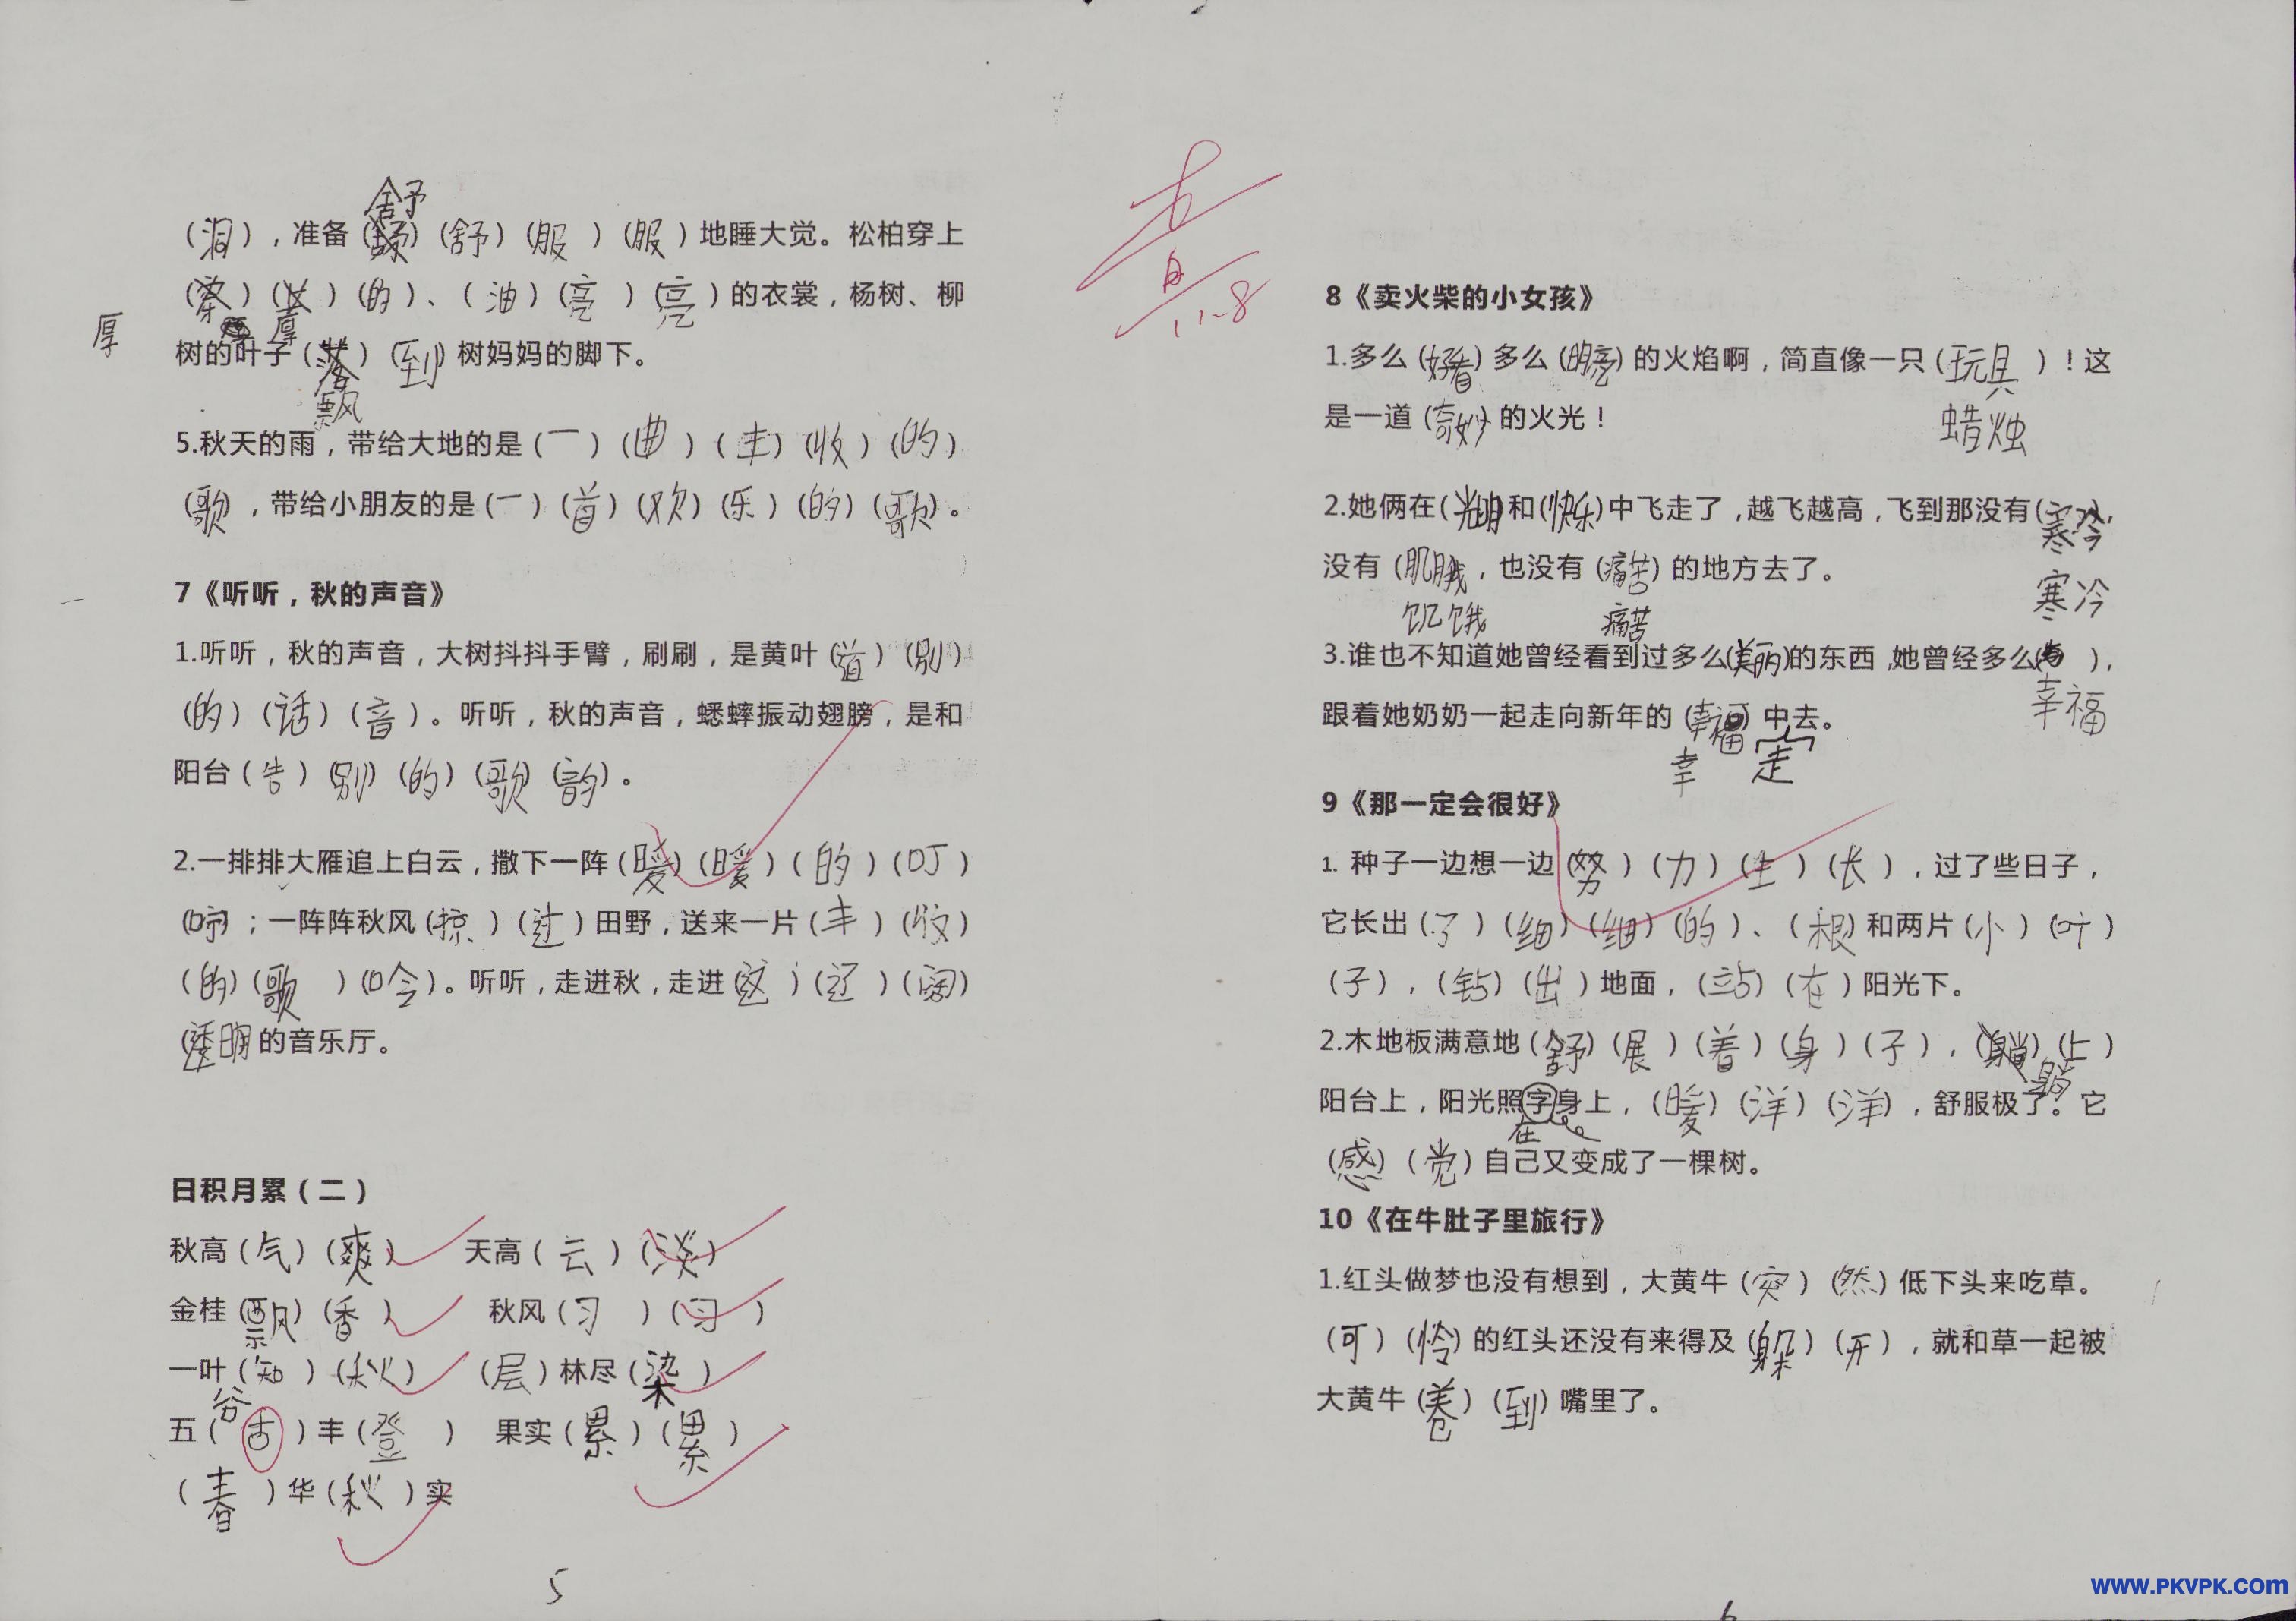 舒
（洞），准备（舒）（舒）（服）（服）地睡大觉。松柏穿上
（）（）（的）、（油）（亮）（亮）的衣裳，杨树、柳
厚 厚
树的叶子（落）（到）树妈妈的脚下。
飘
5.秋天的雨，带给大地的是（一）（曲）（丰）（收）（的）
（歌），带给小朋友的是（一）（首）（欢）（乐）（的）（歌）。
7《听听，秋的声音》
1.听听，秋的声音，大树抖抖手臂，刷刷，是黄叶（道）（别）
（的）（话）（音）。听听，秋的声音，蟋蟀振动翅膀，是和
阳台（告）（别）（的）（歌）（韵）。
2.一排排大雁追上白云，撒下一阵（暖）（暖）（的）（叮）
（咛）；一阵阵秋风（掠）（过）田野，送来一片（丰）（收）
（的）（歌）（吟）。听听，走进秋，走进（这）（辽）（阔）
（透明的音乐厅。
日积月累（二）
秋高（气）（爽） 天高（云）（淡）
金桂（飘）（香） 秋风（习）（习）
一叶（知）（秋） （层）林尽（染）
谷
五（古）丰（登） 果实（累）（累）
（春）华（秋）实
5
11.8
8《卖火柴的小女孩》
1.多么（好看）多么（明亮）的火焰啊，简直像一只（玩具）！这
是一道（奇妙）的火光！ 蜡烛
2.她俩在（光明）和（快乐）中飞走了，越飞越高，飞到那没有（寒冷），
没有（肌饿，也没有（痛苦）的地方去了。 寒冷
饥饿 痛苦
3.谁也不知道她曾经看到过多么（美丽）的东西，她曾经多么（），
跟着她奶奶一起走向新年的（幸福）中去。 幸福
幸 走
9《那一定会很好》
1. 种子一边想一边（努）（力）（生）（长），过了些日子，
它长出（了）（细）（细）（的）、（根）和两片（小）（叶）
（子），（钻）（出）地面，（站）（在）阳光下。
2.木地板满意地（舒）（展）（着）（身）（子），（躺）（上）
躺
阳台上，阳光照字身上，（暖）（洋）（洋），舒服极了。它
在
（感）（觉）自己又变成了一棵树。
10《在牛肚子里旅行》
1.红头做梦也没有想到，大黄牛（突）（然）低下头来吃草。
（可）（怜）的红头还没有来得及（躲）（开），就和草一起被
大黄牛（卷）（到）嘴里了。
6
www.PKVPK.com